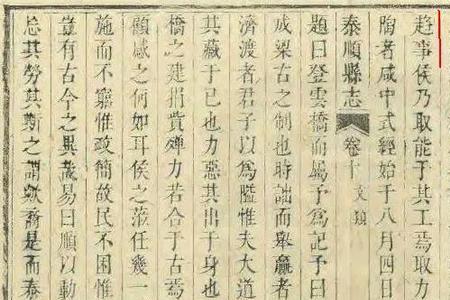 趋事侯乃取能于其工焉取力
陶者咸中式經始于八月四日
泰順縣志 卷十文類
題曰登雲橋而屬予爲記予曰
成梁古之制也時詘而舉羸者
濟渡者君子以爲隘惟夫大道
其藏于巳也力惡其出于身也
橋之建捐貲殫力若合于古焉
顧感之何如耳侯之蒞任幾一
施而不窮惟政簡故民不困惟
豈有古今之異哉易曰順以動
忘其勞其斯之謂歟裔是而泰